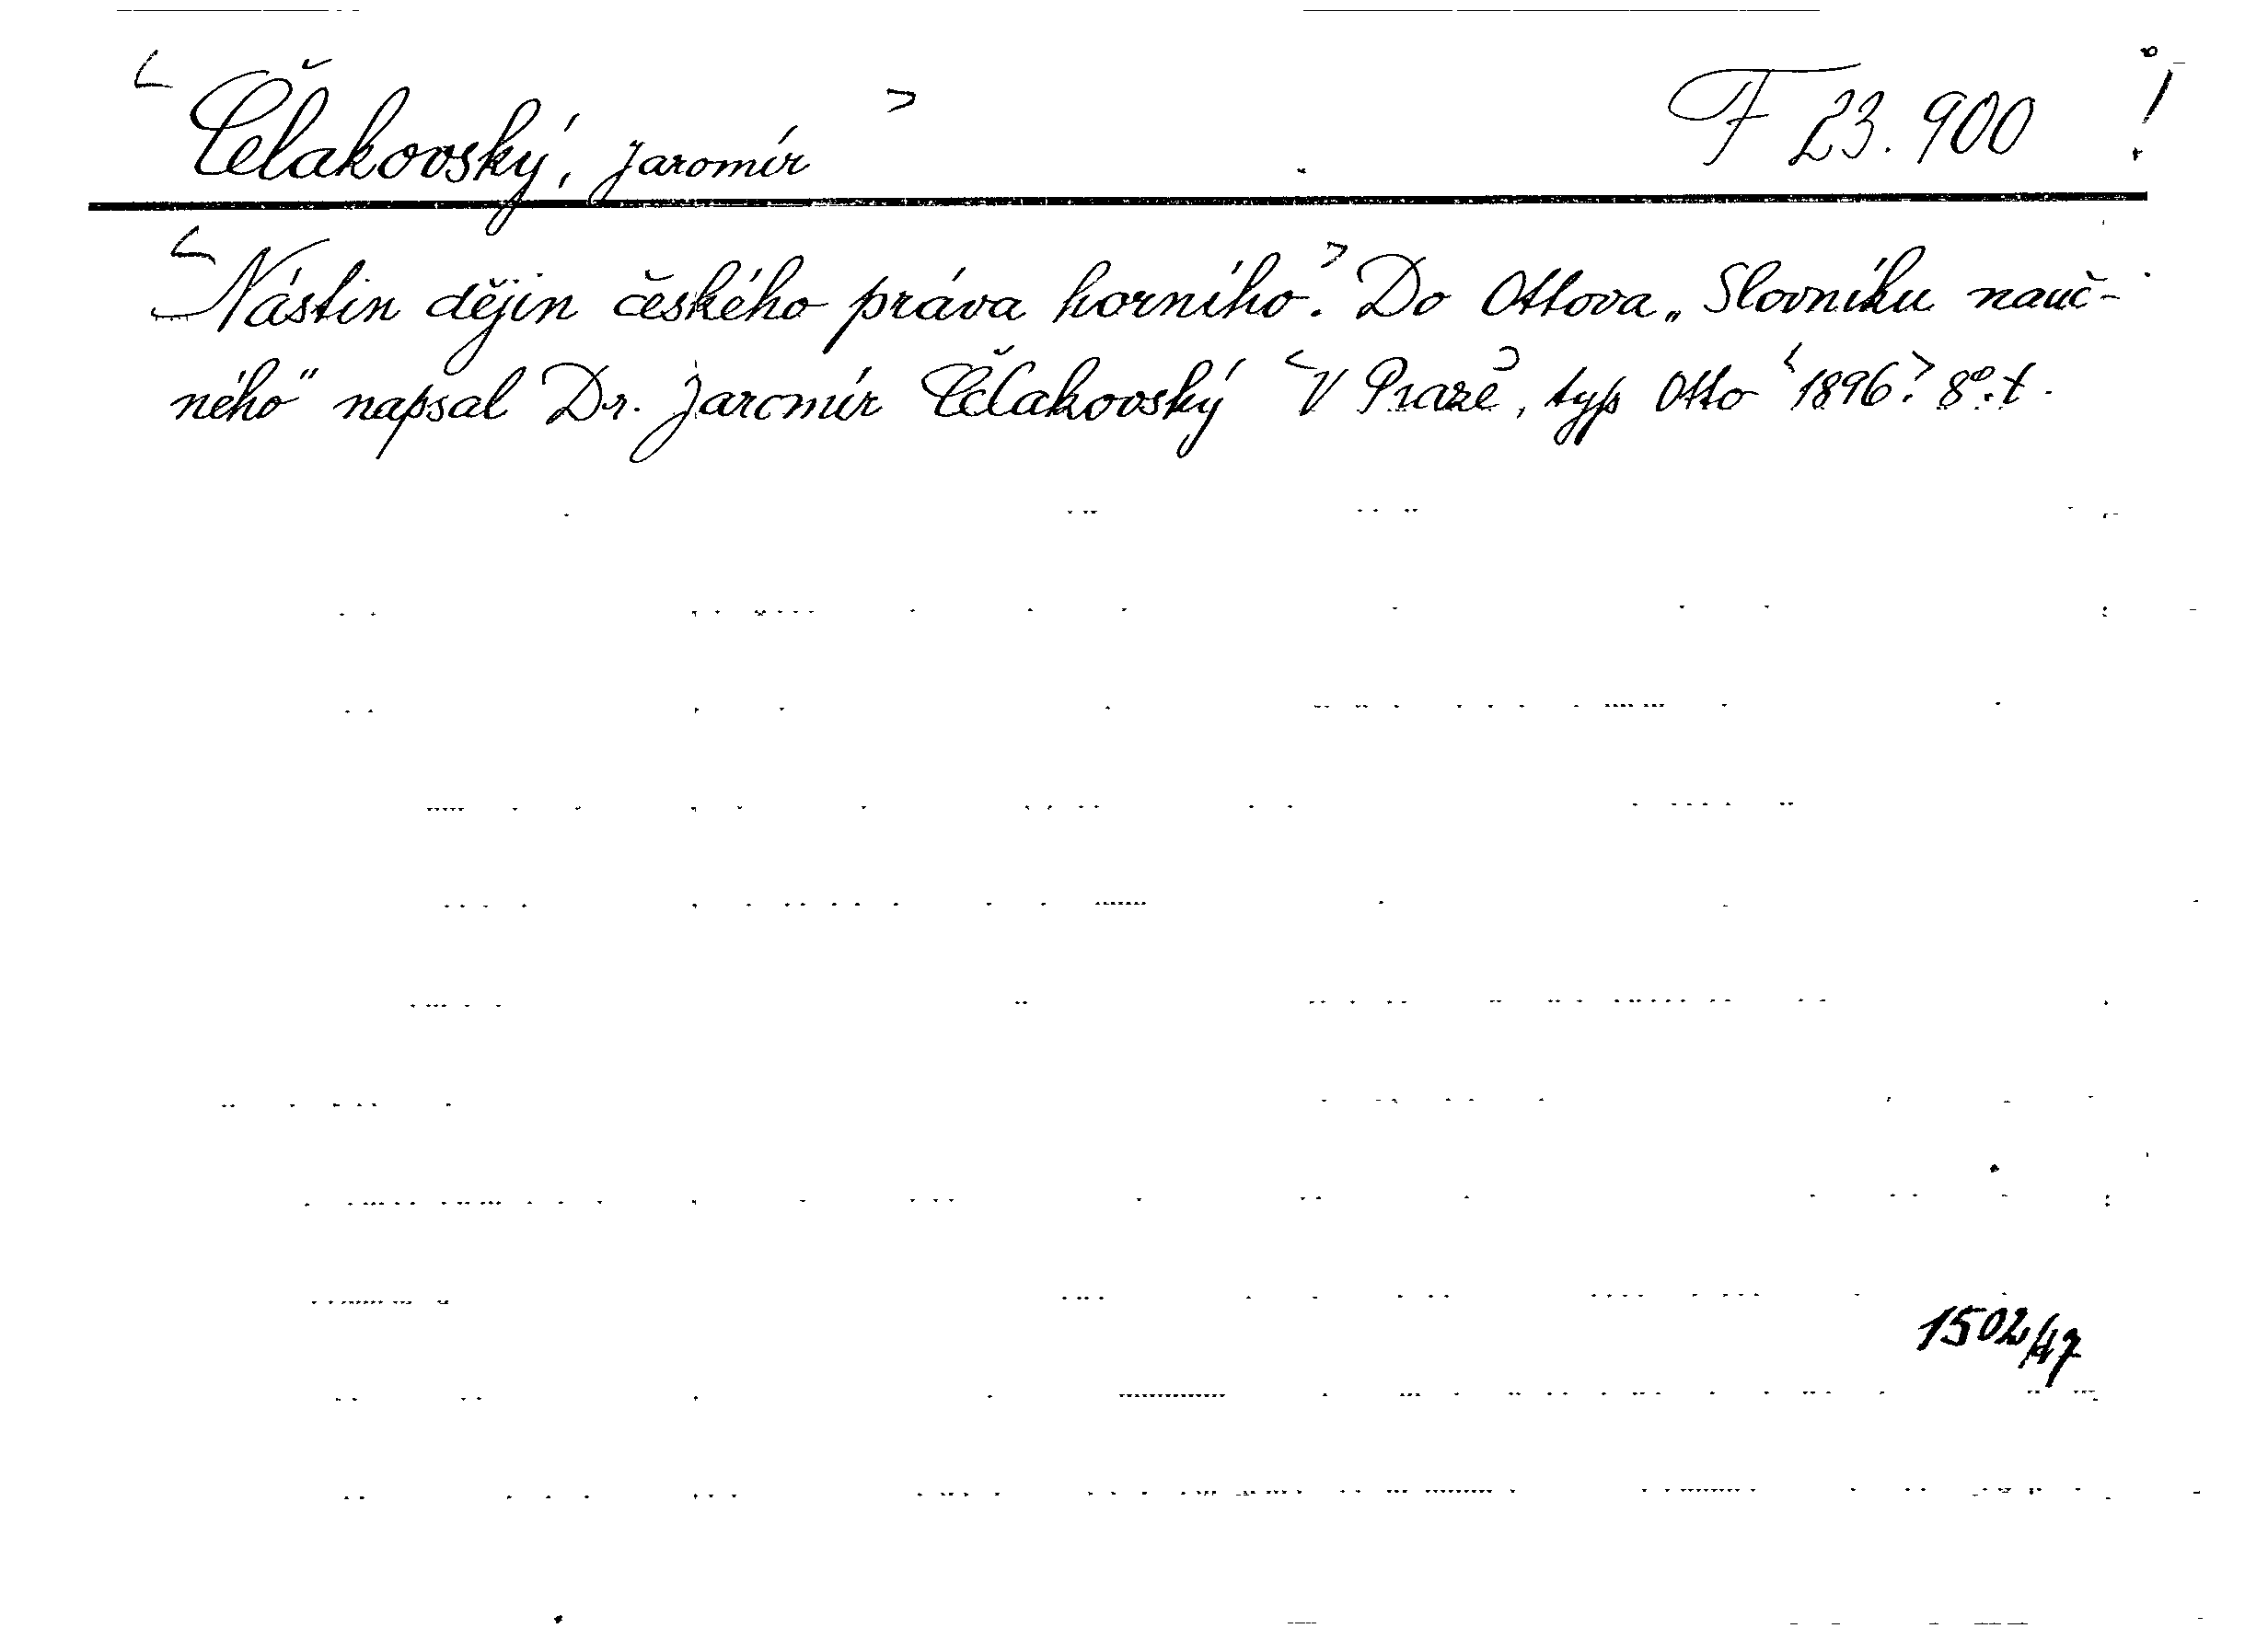 <Čelakovský, Jaromír> F 23.900 !
<Nástin dějin českého práva horního.> Do Ottova „Slovníku nauč-
ného" napsal Dr. Jaromír Čelakovský <V Praze>, typ Otto <1896>. 8°. t.
1502/47